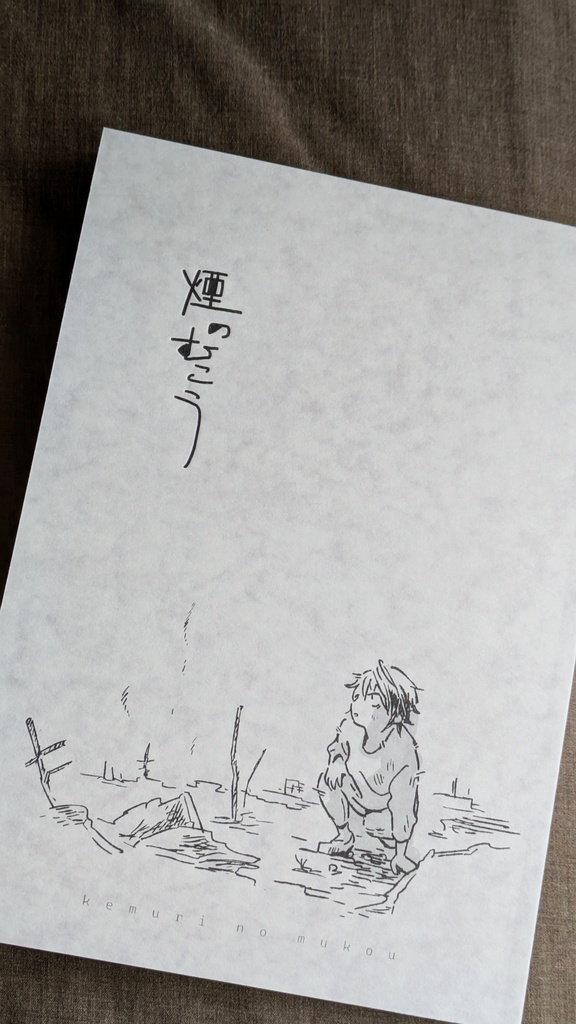 煙のむこう
kemuri no mukou